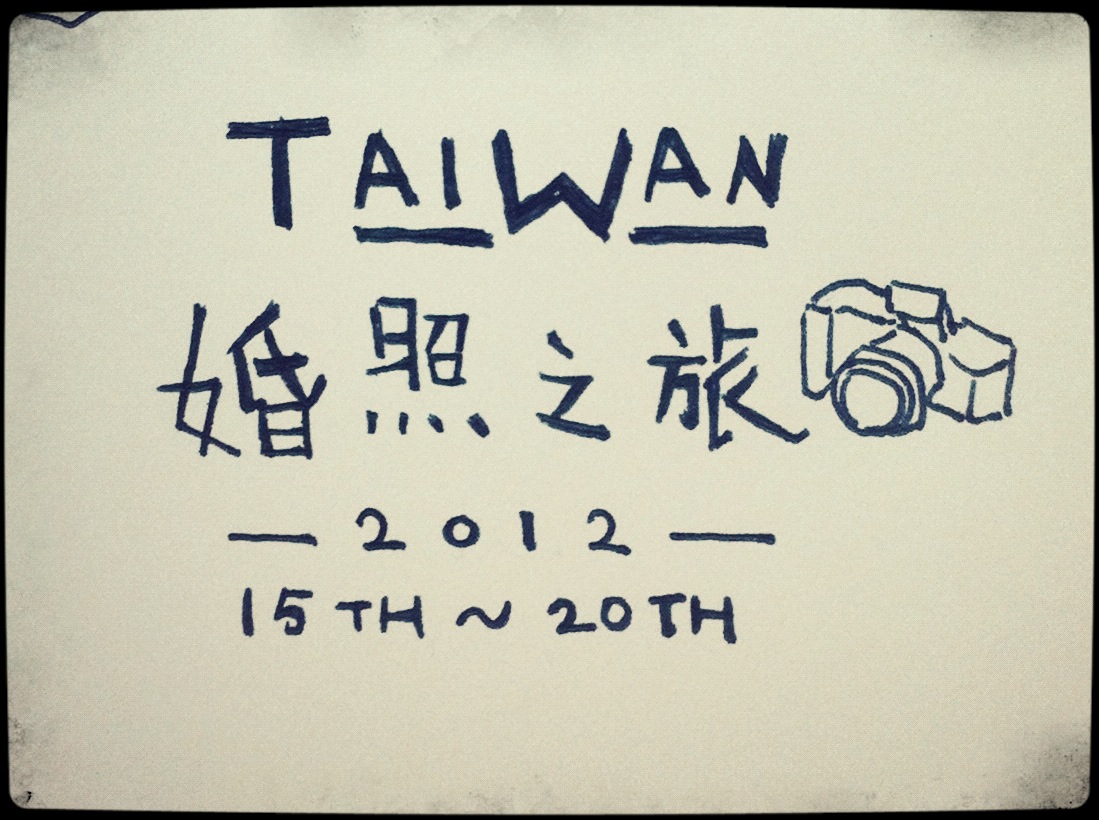 TAIWAN
婚照之旅
— 2012 —
15TH ~ 20TH